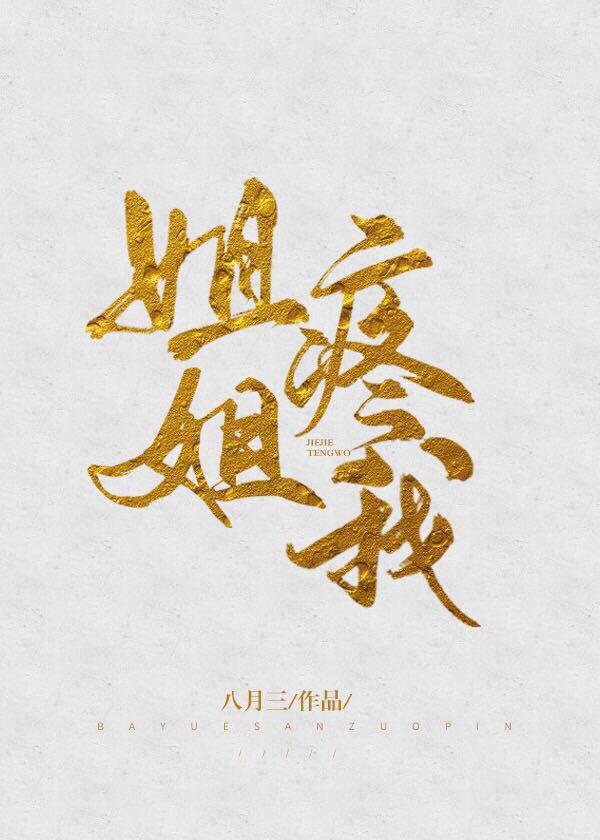 姐姐
疼我
JIEJIE
TENGWO
八月三/作品/
BAYUESANZUOPIN
/ / / / /